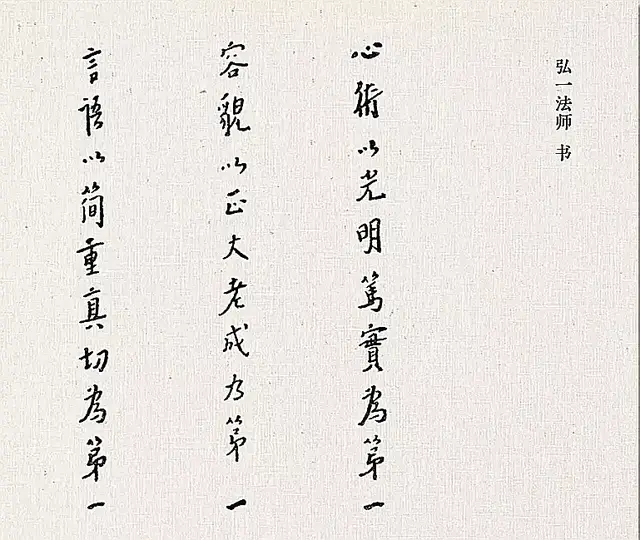 弘一法师 书
心術以光明篤實為第一
容貌以正大老成为第一
言語以简重真切為第一